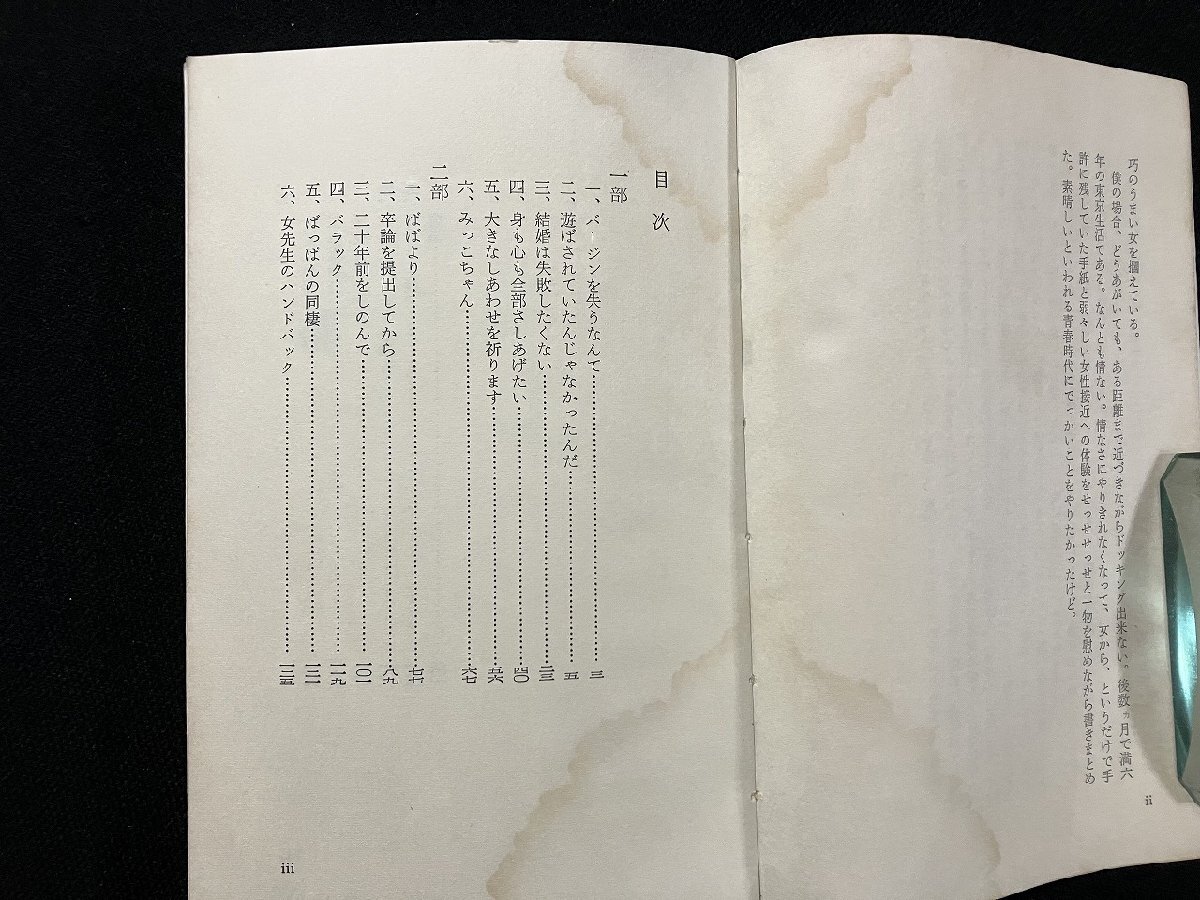 巧のうまい女を摑えている。
僕の場合、どうあがいても、ある距離まで近づきながらドッキング出来ない。後数ヵ月で満六
年の東京生活である。なんとも情ない。情なさにやりきれなくなって、女から、というだけで手
許に残していた手紙と弱々しい女性接近への体験をせっせせっせと一物を慰めながら書きまとめ
た。素晴しいといわれる青春時代にでっかいことをやりたかったけど。
ii
目次
一部
一、バージンを失うなんて……三
二、遊ばされていたんじゃなかったんだ……一五
三、結婚は失敗したくない……二三
四、身も心も全部さしあげたい……四〇
五、大きなしあわせを祈ります……五六
六、みっこちゃん……六七
二部
一、ばばより……七七
二、卒論を提出してから……八九
三、二十年前をしのんで……一〇一
四、バラック……一一九
五、ばっぱんの同棲……一三一
六、女先生のハンドバック……一三五
iii